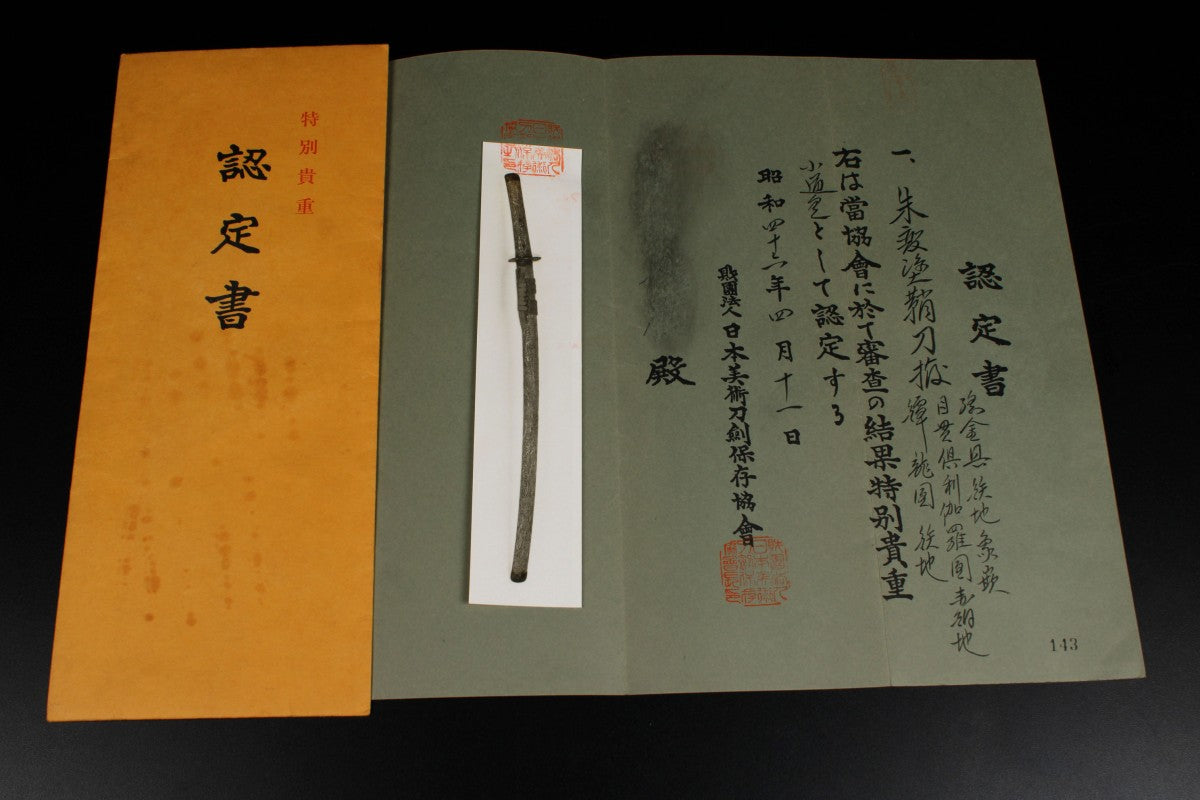 特別貴重
認定書
認定書
一、朱鞘塗鞘刀拵
鐔 龍図 鉄地
目貫倶利伽羅図赤銅地
縁金具鉄地象嵌
右は當協會に於て審査の結果特別貴重
小道具として認定する
昭和四十六年四月十一日
財團法人日本美術刀劍保存協會
殿
143